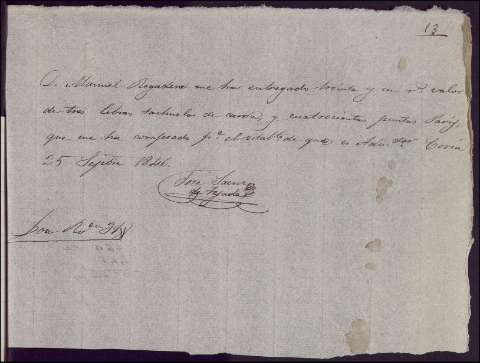 13
D. Manuel Regadera me ha entregado treinta y un r.^s valor
de tres libras tachuelas de y cuatrocientas puntas Paris,
que me ha comprado p.^a el establ.^to de que es Adm.^dor Coria
25 Septbre 1846.
Jose Saenz
de Tejada
Son R.^s v.^n 31